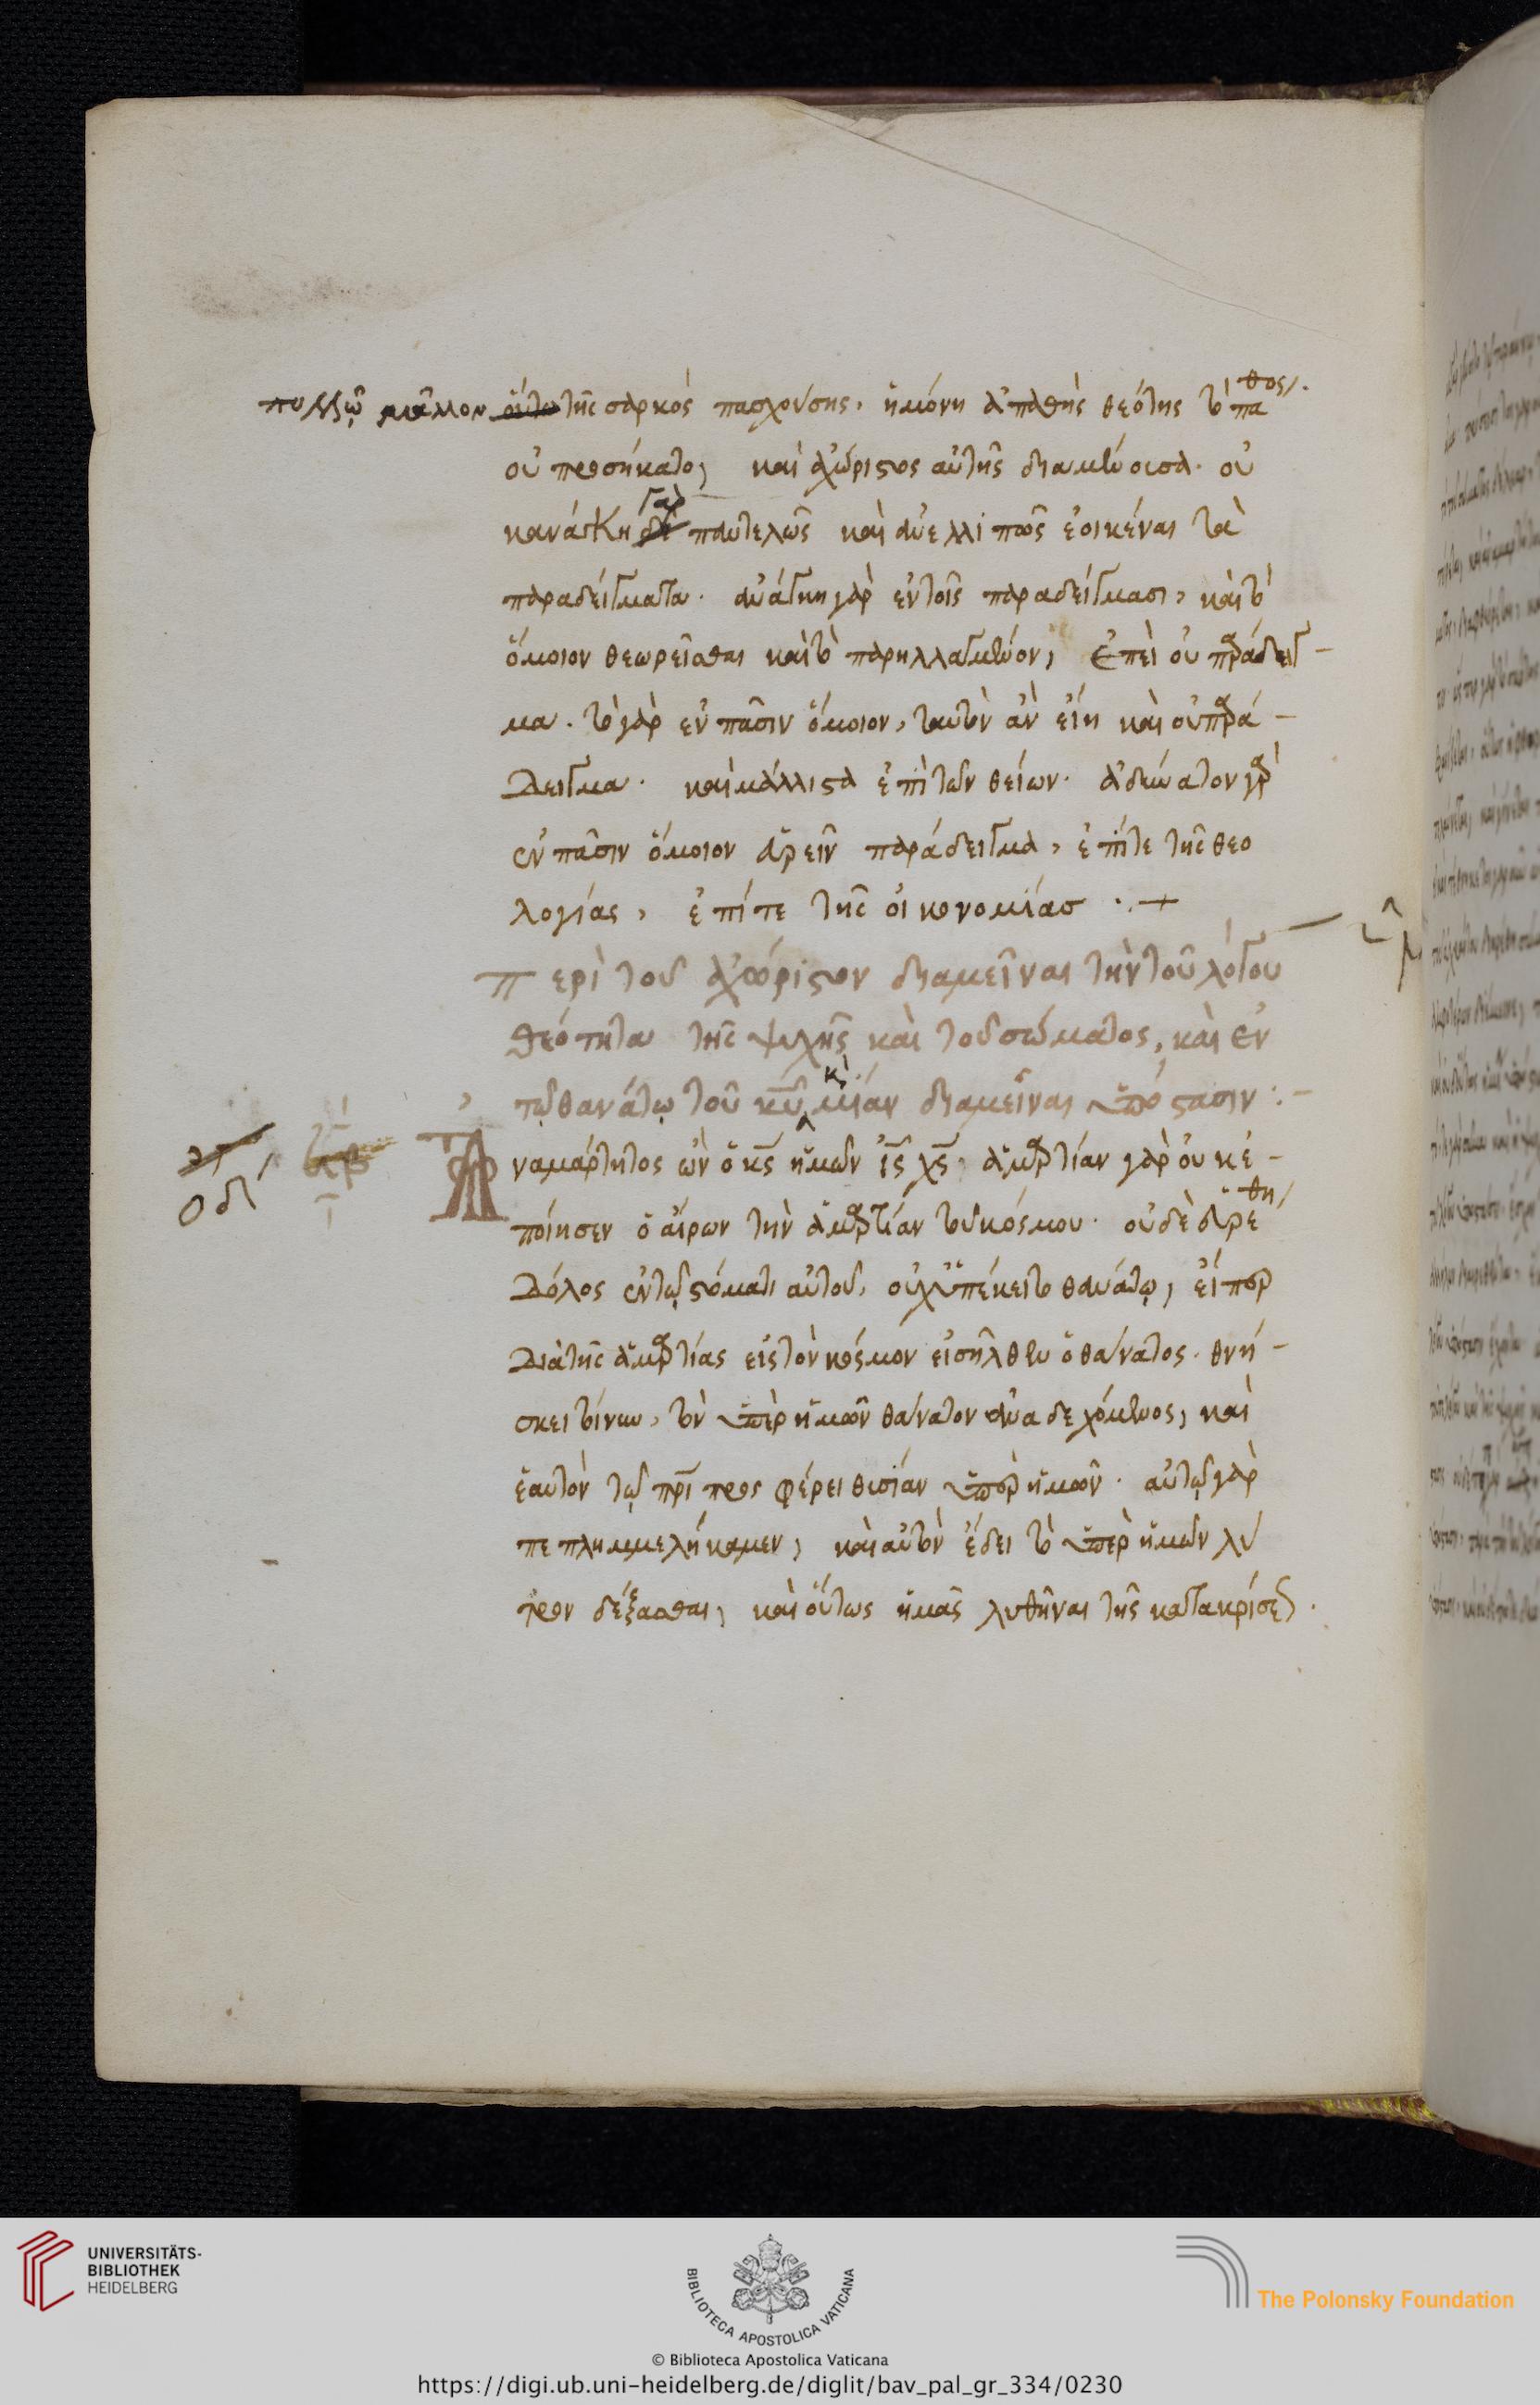 πολλῷ μᾶλλον οὕτω τῆς σαρκὸς πασχούσης, ἡ μόνη ἀπαθὴς θεότης τὸ πάθος
οὐ προσήκατο, καὶ ἀχώριστος αὐτῆς διαμένουσα. οὐ
κανάγκη δὲ γὰρ παντελῶς καὶ ἀνελλιπῶς ἐοικέναι τὰ
παραδείγματα. ἀνάγκη γὰρ ἐν τοῖς παραδείγμασι, καὶ τὸ
ὅμοιον θεωρεῖσθαι καὶ τὸ παρηλλαγμένον, ἐπεὶ οὐ παράδειγ-
μα. τὸ γὰρ ἐν πᾶσιν ὅμοιον, ταυτὸν ἂν εἴη καὶ οὐ παρά-
δειγμα. καὶ μάλιστα ἐπὶ τῶν θείων. ἀδύνατον γὰρ
ἐν πᾶσιν ὅμοιον εὑρεῖν παράδειγμα, ἐπί τε τῆς θεο
λογίας, ἐπί τε τῆς οἰκονομίας .+
περὶ τοῦ ἀχώριστον διαμεῖναι τὴν τοῦ λόγου
θεότητα τῆς ψυχῆς καὶ τοῦ σώματος, καὶ ἐν
τῷ θανάτῳ τοῦ κυ καὶ μίαν διαμεῖναι ὑπόστασιν :-
οδ
Ἀναμάρτητος ὢν ὁ κς ἡμῶν ις χς, ἁμαρτίαν γὰρ οὐκ ἐ-
ποίησεν ὁ αἴρων τὴν ἁμαρτίαν τοῦ κόσμου. οὐδὲ εὑρέθη
δόλος ἐν τῷ στόματι αὐτοῦ, οὐχ ὑπέκειτο θανάτῳ, εἴπερ
διὰ τῆς ἁμαρτίας εἰς τὸν κόσμον εἰσῆλθεν ὁ θάνατος. θνή-
σκει τοίνυν, τὸν ὑπὲρ ἡμῶν θάνατον ἀναδεχόμενος, καὶ
ἑαυτὸν τῷ πρὶ προσφέρει θυσίαν ὑπὲρ ἡμῶν. αὐτῷ γὰρ
πεπλημμελήκαμεν, καὶ αὐτὸν ἔδει τὸ ὑπὲρ ἡμῶν λύ
τρον δέξασθαι, καὶ οὕτως ἡμᾶς λυθῆναι τῆς κατακρίσεως.
UNIVERSITÄTS-
BIBLIOTHEK
HEIDELBERG
BIBLIOTECA APOSTOLICA VATICANA
The Polonsky Foundation
© Biblioteca Apostolica Vaticana
https://digi.ub.uni-heidelberg.de/diglit/bav_pal_gr_334/0230